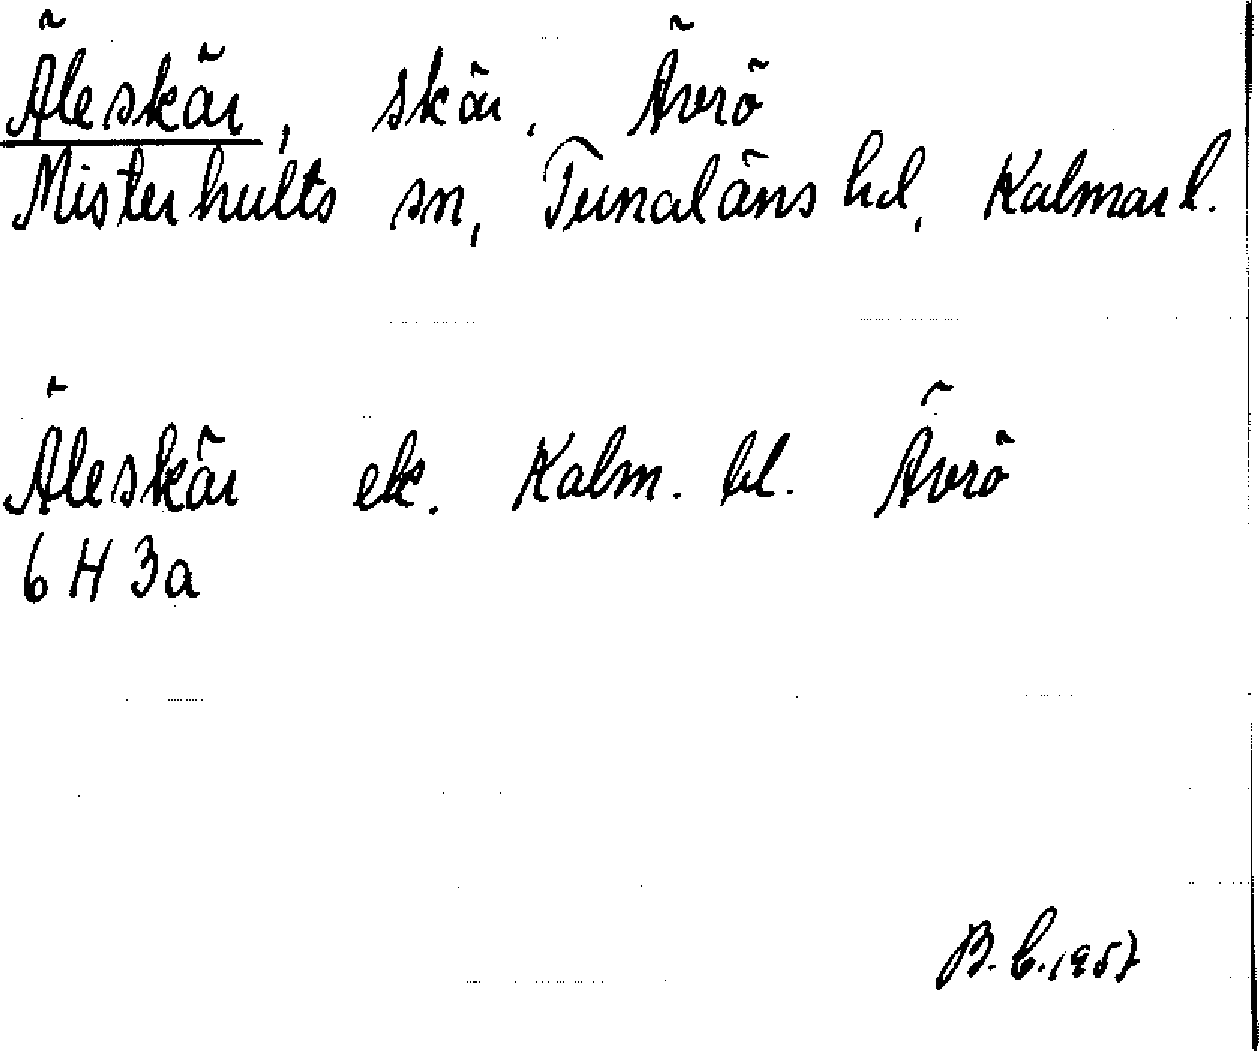 Äleskär, skär, Ävrö
Misterhults sn, Tunaläns hd, Kalmar l.
Äleskär ek. Kalm. bl. Ävrö
6 H 3a
B. C. 1957